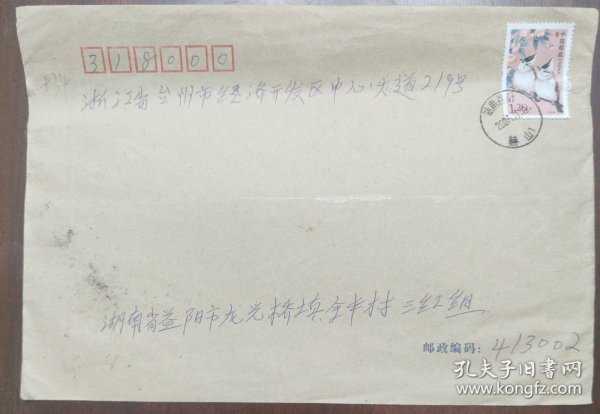 318000
浙江省台州市经济开发区中心大道219号
中国邮政
湖南
2007
赫山
湖南省益阳市龙光桥镇全丰村三红组
邮政编码：413002
孔夫子旧书网
www.kongfz.com